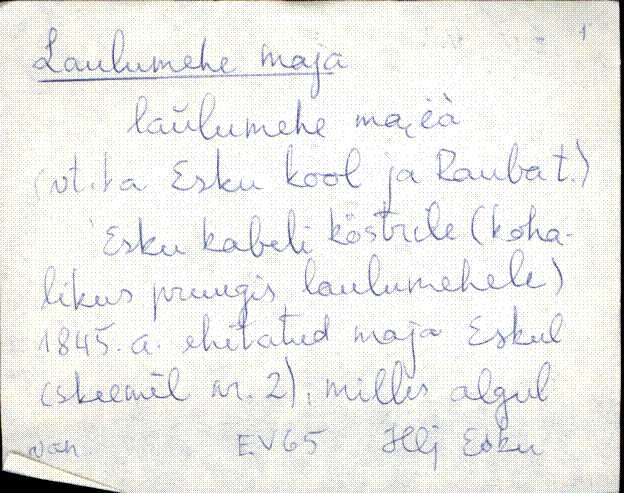 1
Laulumehe maja
laŭlumehe ma̮i̯à
(vt. ka Esku kool ja Raubat.)
Esku kabeli köstrile (koha-
likus pruugis laulumehele)
1845. a. ehitatud maja Eskul
(skeemil nr. 2), milles algul
EV65 Hlj Esku